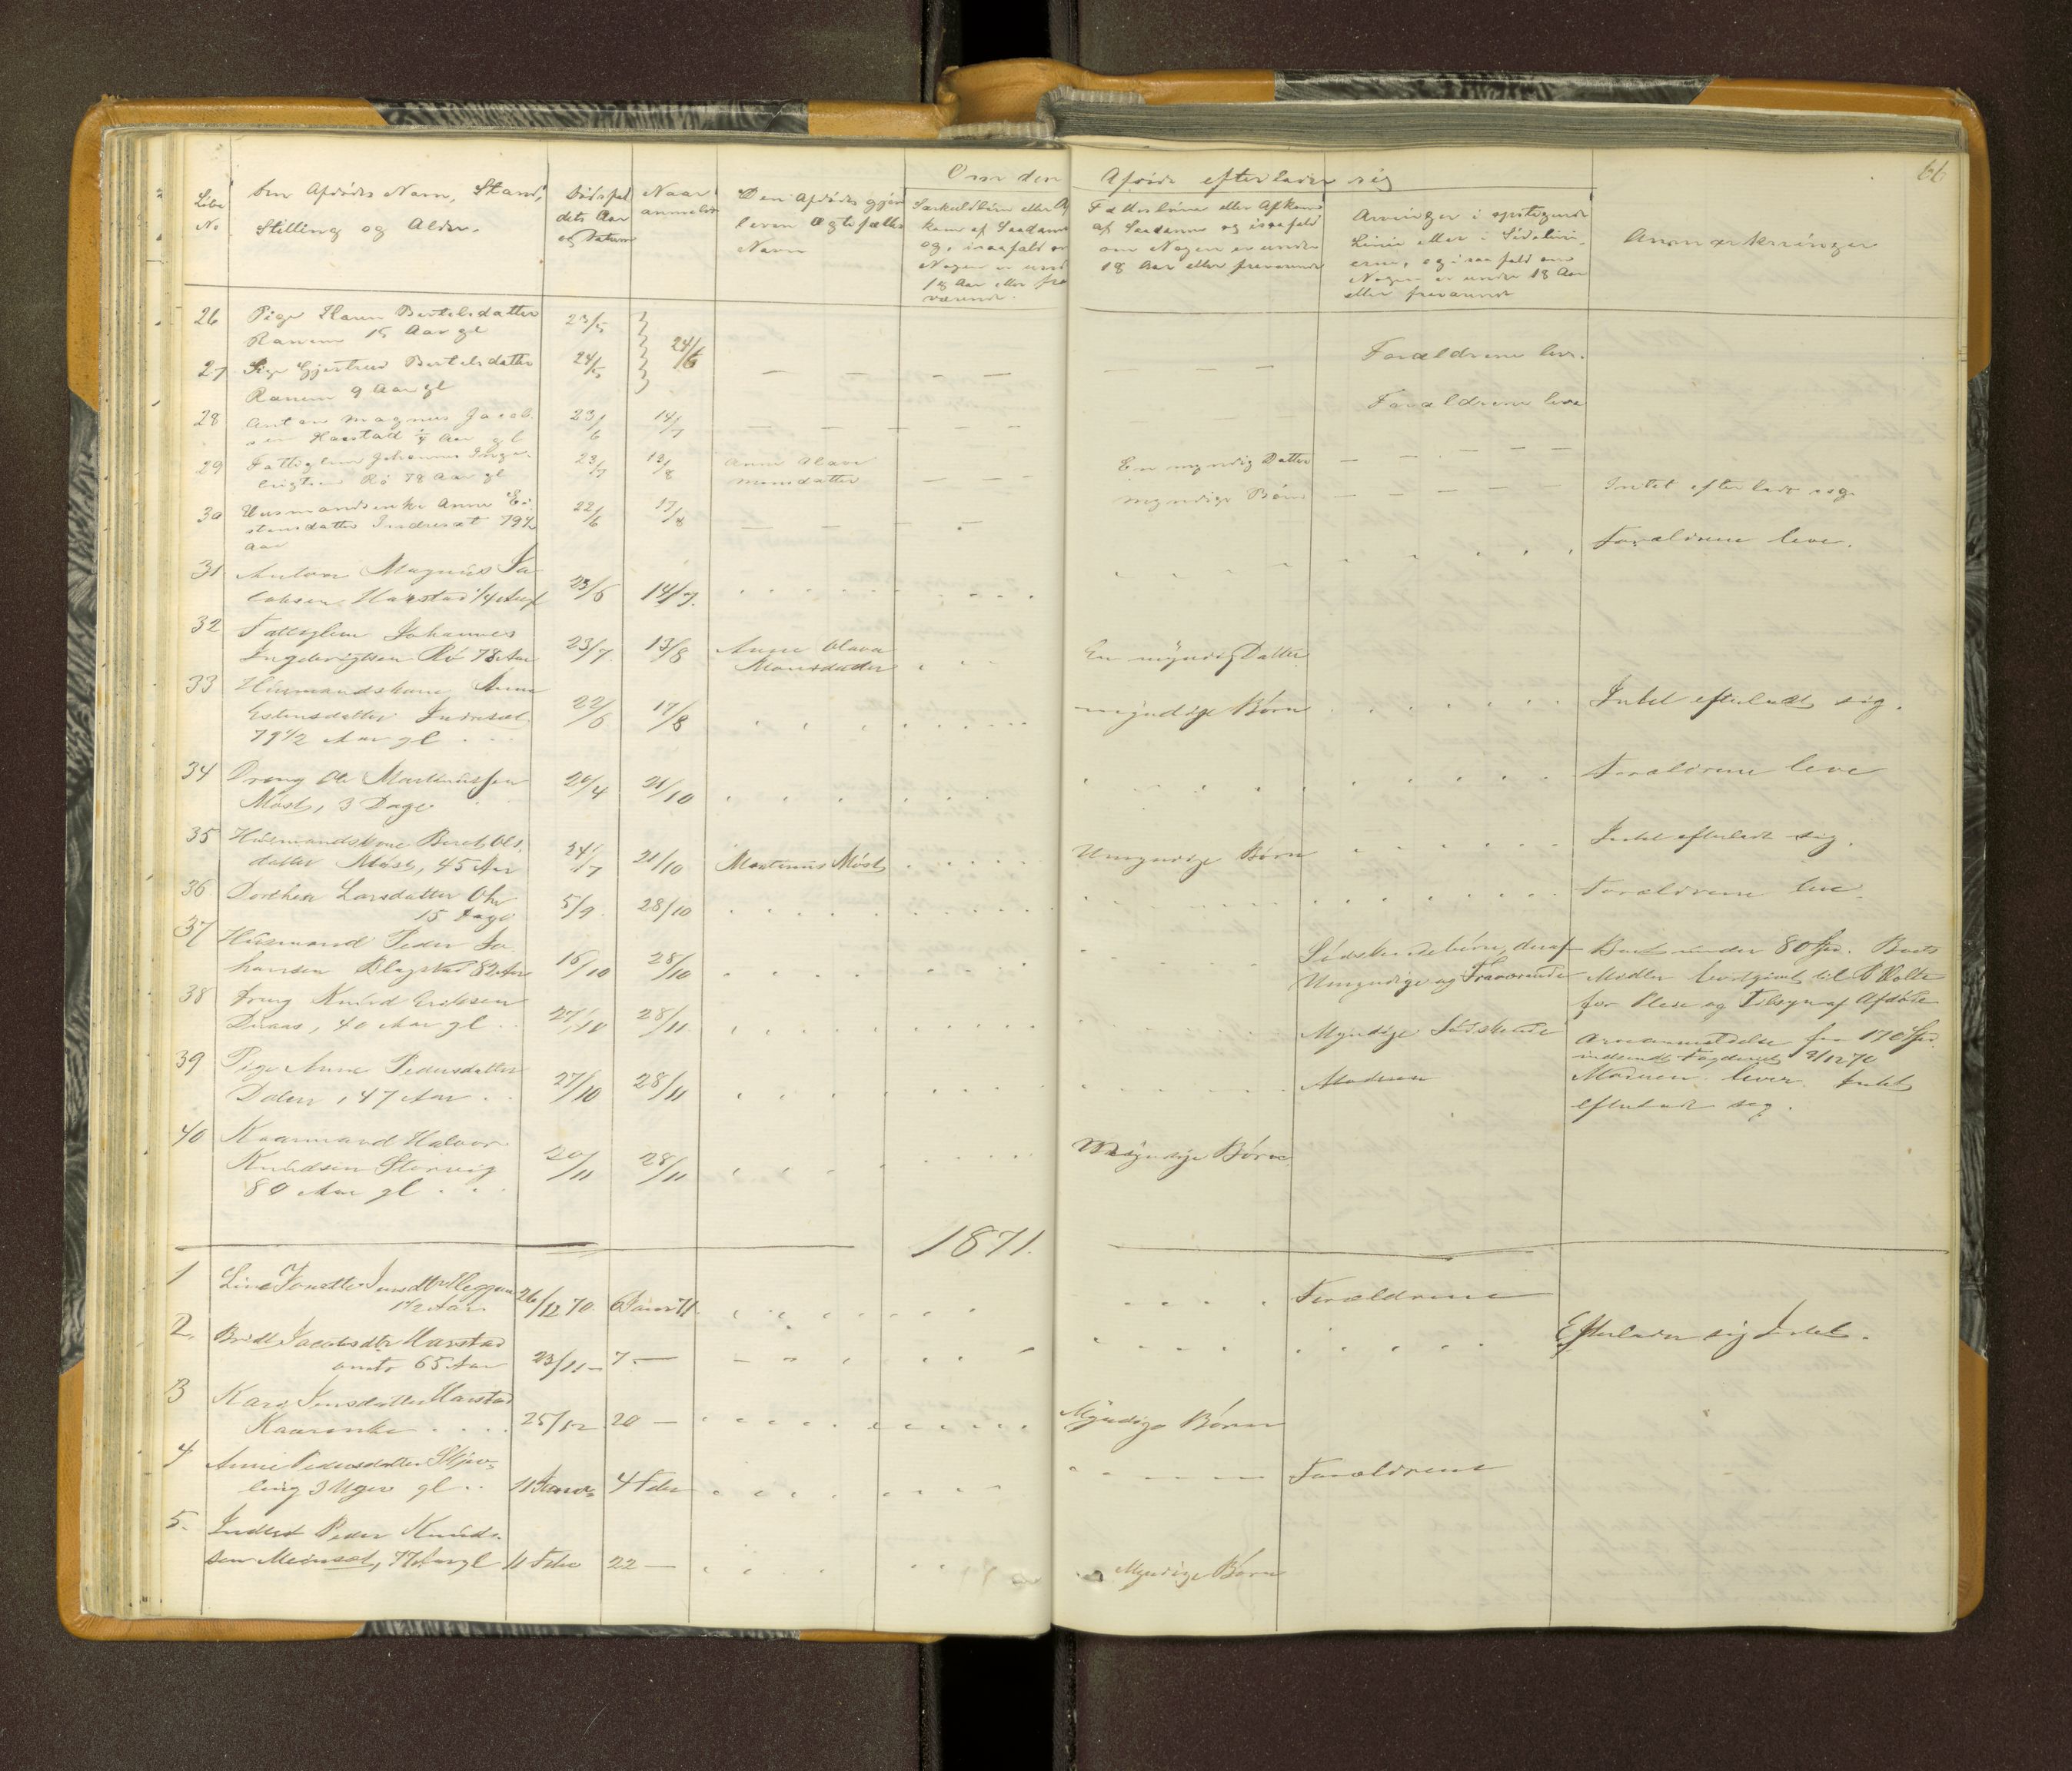 66
Om den Afdøde efterlader sig
Løbe No
Den Afdødes Navn, Stand, Stilling og Alder.
Dødsfaldets Aar og Datum
Naar anmeldt
Den Afdødes gjenlevende Ægtefælles Navn
Særkuldbørn eller Afkom af Saadanne og i saafald om Nogen er under 18 Aar eller fraværende.
Fællesbørn eller Afkom af Saadanne og isaafald om Nogen er under 18 Aar eller fraværende
Arvinger i opstigende Linie eller i Sidelinierne, og i saafald om Nogen er under 18 Aar eller fraværende
Anmærkninger
26 Pige Karen Bertelsdatter 23/5 24/6 Forældrene leve.
Ranem 15 Aar gl
27 Pige Gjertrud Bertelsdatter 24/5
Ranem 9 Aar gl Forældrene leve
28 Anton Magnus Jacob- 23/6 14/7
sen Harstad 1/4 Aar gl
29 Fattiglem Johannes Inge- 23/7 13/8 Anne Olava En myndig Datter
brigtsen Rø 78 Aar gl Monsdatter
30 Husmandsenke Anne E- 22/6 17/8 myndige Børn Intet efterladt sig.
stensdatter Indresæt 79 1/2
Aar
31 Anton Magnus Ja- Forældrene leve.
cobsen Harstad 1/4 Aar gl 23/6 14/7.
32 Fattiglem Johannes
Ingebrigtsen Rø 78 Aar 23/7. 13/8 Anne Olava En myndig Datter
Monsdatter
33 Husmandskone Anne
Estensdatter Indresæt 22/6 17/8 myndige Børn Intet efterladt sig.
79 1/2 Aar gl
34 Dreng Ole Martinussen 24/4 21/10 Forældrene leve
Møst, 3 Dage
35 Husmandskone Beret Ols- Intet efterladt sig.
datter Møst, 45 Aar 24/7 21/10 Martinus Møst Umyndige Børn
36 Dorthea Larsdatter Forældrene leve
15 Dage 5/9. 28/10
37 Husmand Peder Jo- Sødskendebørn, deraf Boet under 80 Spd. Boets
hansen Klegstad 82 Aar 16/10 28/10 Umyndige og Fraværende Midler bortgivet til
for Pleie og Tilsyn af Afdøde
38 Dreng Knud Eriksen
40 Aar gl 27/10 28/11 Myndige Sødskende Arveanmeldelse for 170 Spd.
indsendt Fogderiet 9/12 70
39 Pige Anne Pedersdatter
Dalen, 47 Aar 27/10 28/11 Moderen Moderen lever. Intet
efterladt sig.
40 Kaarmand Halvor
Knudsen Storvig 20/11 28/11 Myndige Børn
80 Aar gl
1871.
1 Line Jonette Jensdtr Kleppen
1 1/2 Aar. 26/12 70. 6 Januar 71. Forældrene
2. Jacobsdtr Harstad Efterlader sig Intet.
65 Aar 23/11 – 7. –
3 Kari Jensdatter Harstad
Kaarenke 25/12. 20 – Myndige Børn
4 Anne Pedersdatter Skjev-
ling 3 Uger gl 11 Januar 4 Febr Forældrene
5. Inderst Peder Knud-
sen 77 Aar gl 11 Febr 22 – Myndige Børn